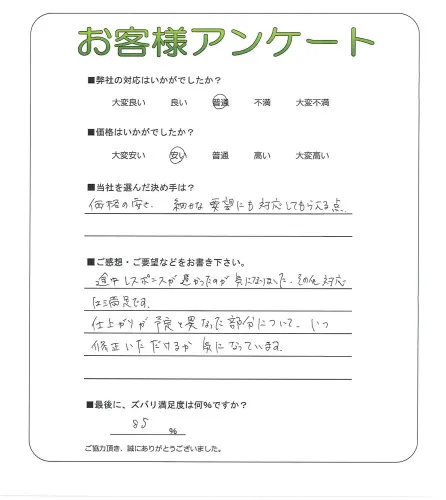 お客様アンケート
■弊社の対応はいかがでしたか？
大変良い 良い 普通 不満 大変不満
■価格はいかがでしたか？
大変安い 安い 普通 高い 大変高い
■当社を選んだ決め手は？
価格の安さ、細かな要望にも対応してもらえる点。
■ご感想・ご要望などをお書き下さい。
途中レスポンスが遅かったのが気になりました。その他対応
は満足です。
仕上がりが予定と異なった部分について、いつ
修正いただけるか気になっています。
■最後に、ズバリ満足度は何%ですか？
85 %
ご協力頂き、誠にありがとうございました。